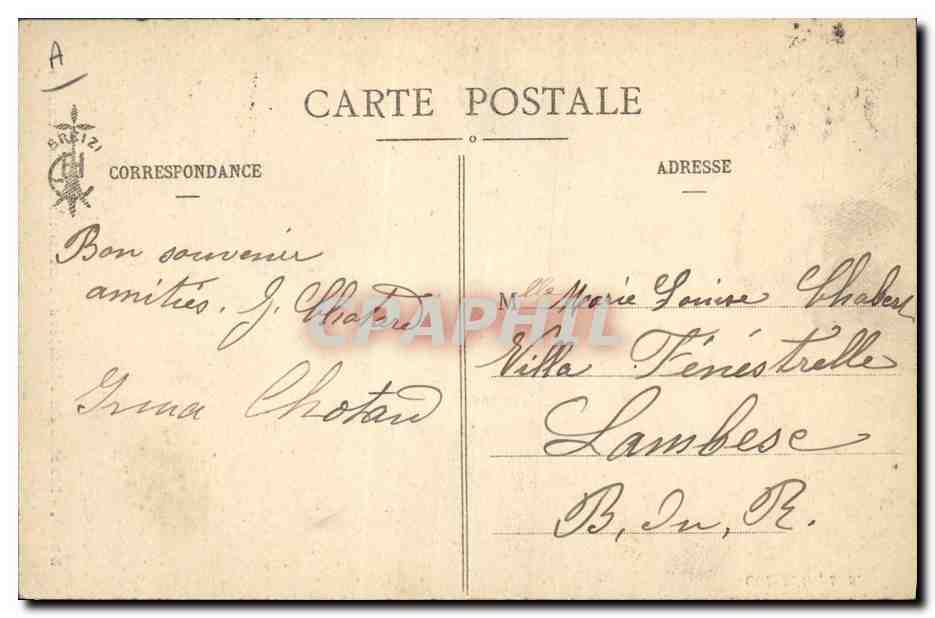 A
CARTE POSTALE
BREIZ
CORRESPONDANCE
ADRESSE
Bon souvenir
amitiés. J. Chotard
Irma Chotard
Mlle Marie Louise Chabert
Villa Fénéstrelle
Lambesc
B, du, R.
CPAPHIL